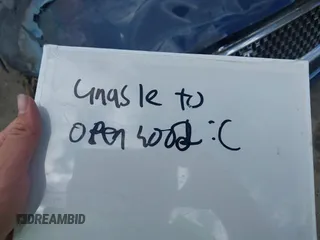 unable to
open hood :(
DREAMBID